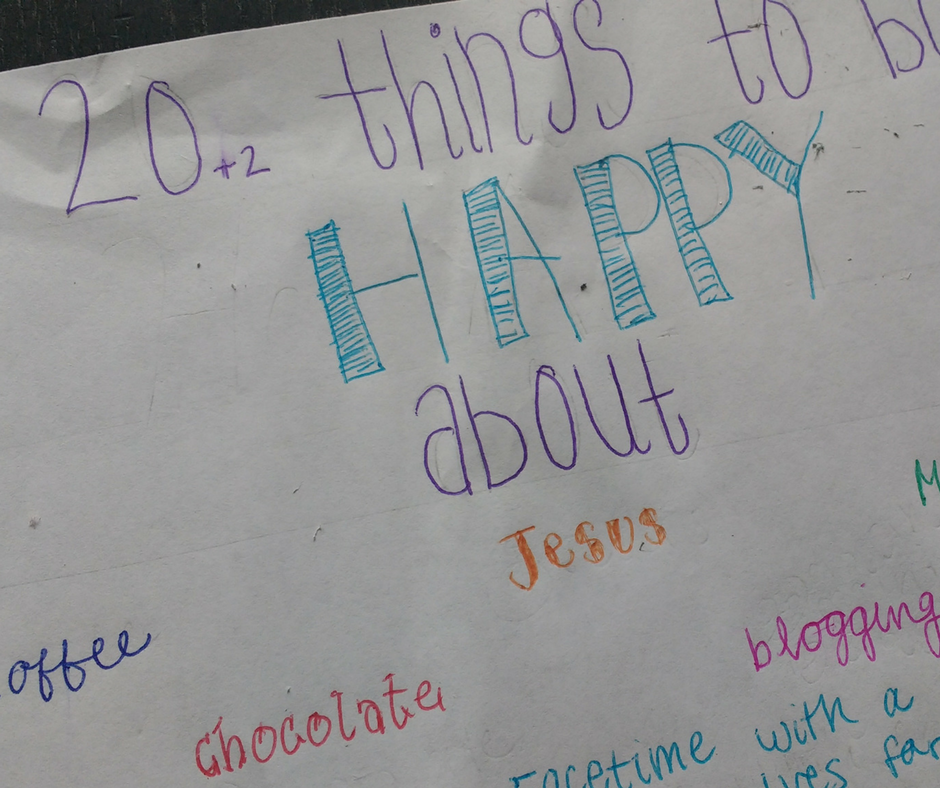 20+2 things to bl
HAPPY
about
Jesus
M
offee
blogging
chocolate
Facetime with a
ives far